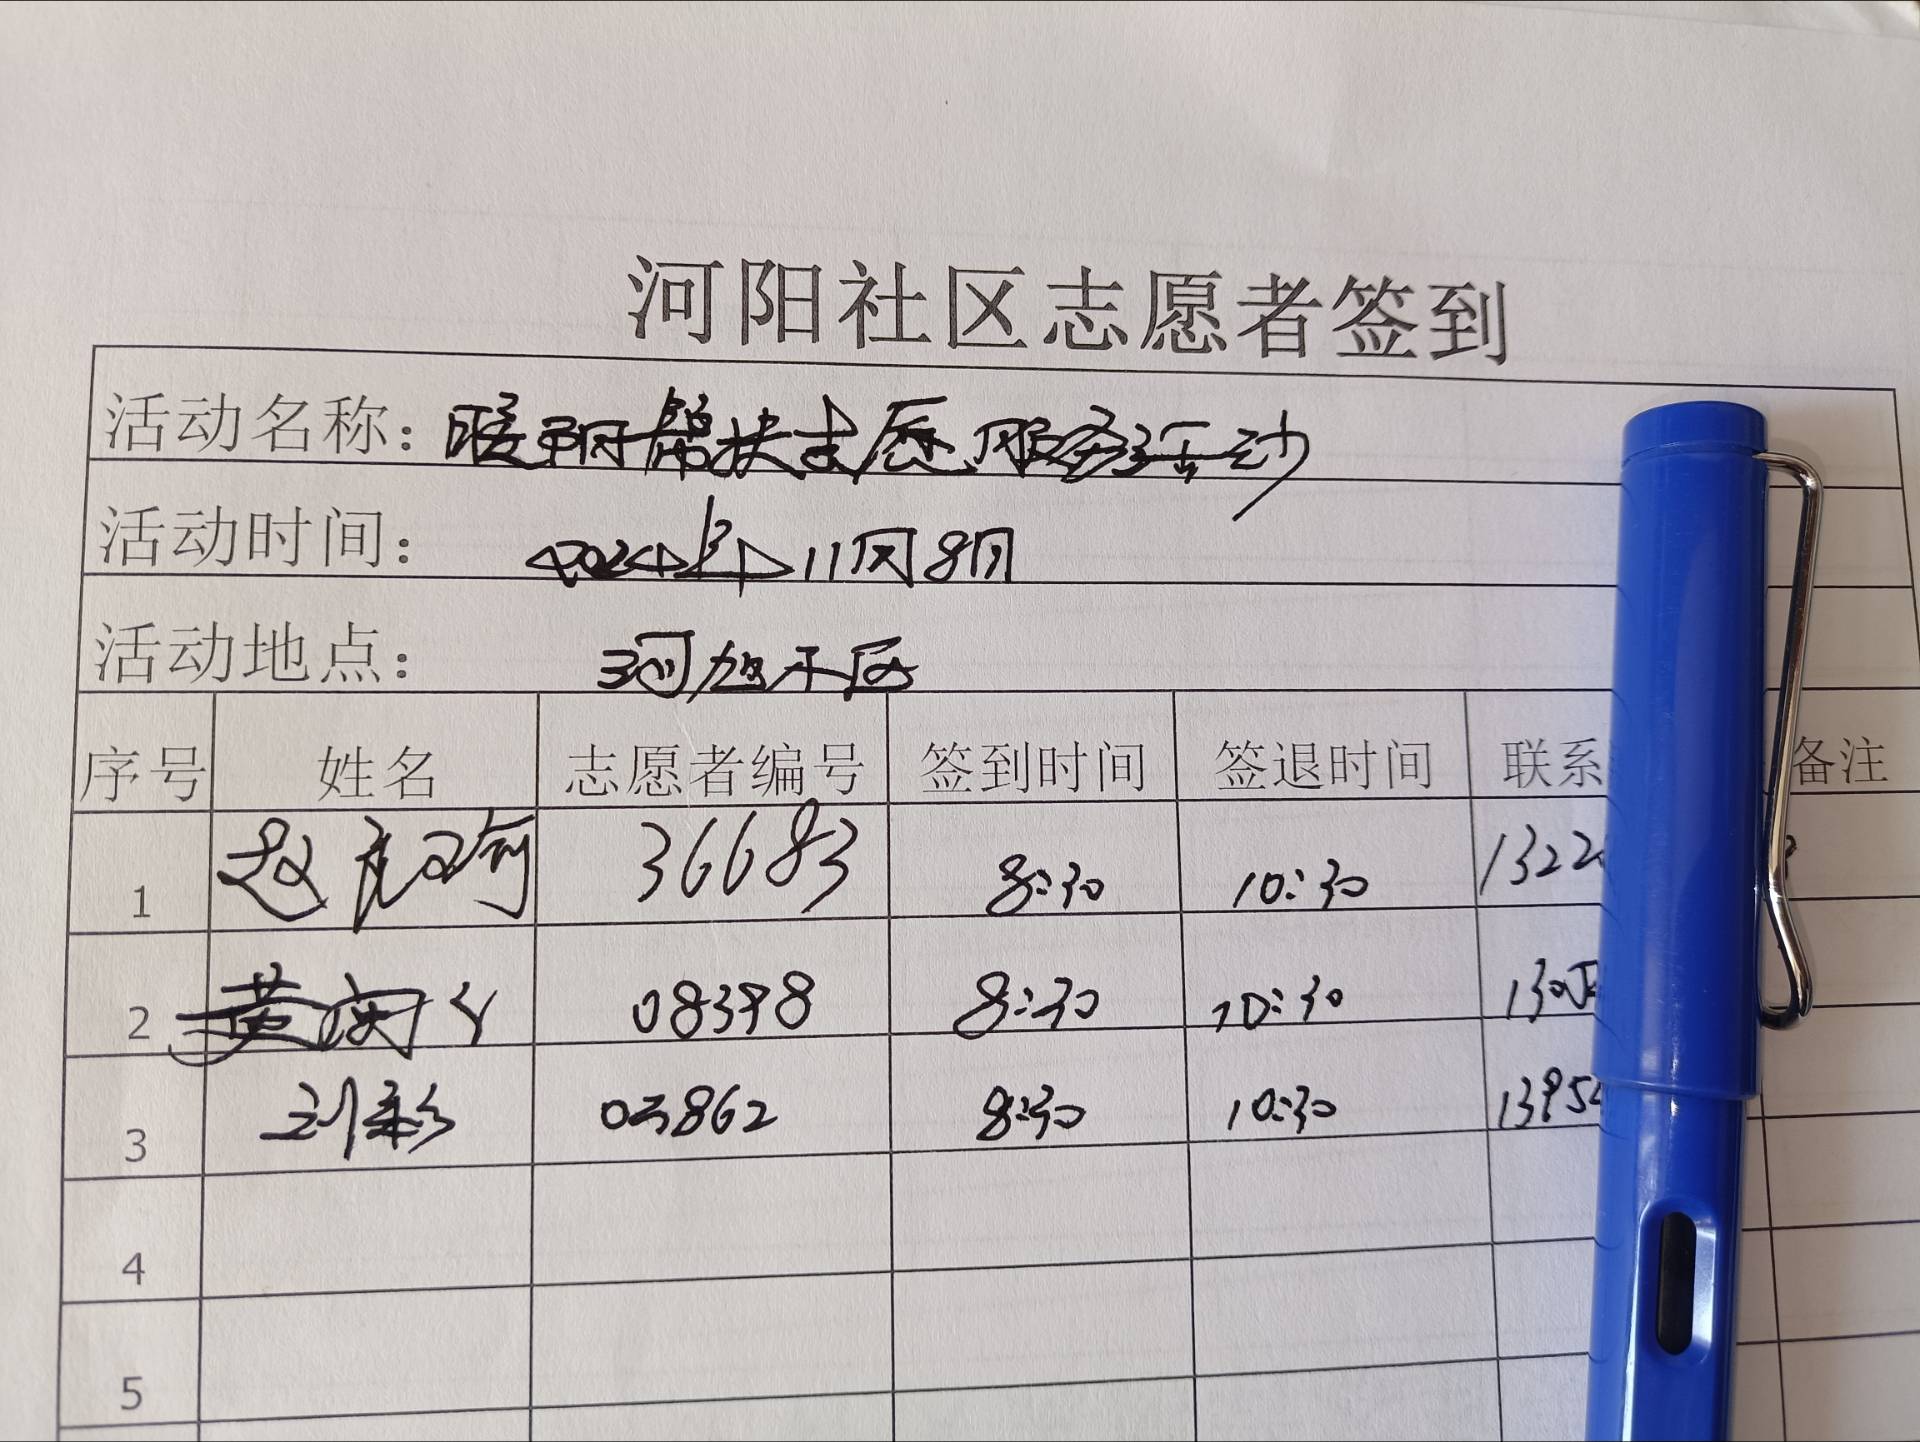 河阳社区志愿者签到
活动名称：暖 帮扶志愿服务活动
活动时间：2024年11月8日
活动地点：河 小区
序号 姓名 志愿者编号 签到时间 签退时间 联系 备注
1 赵 36683 8:30 10:30 1322
2 黄 08398 8:30 10:30 130
3 刘彩 03862 8:30 10:30 1395
4
5